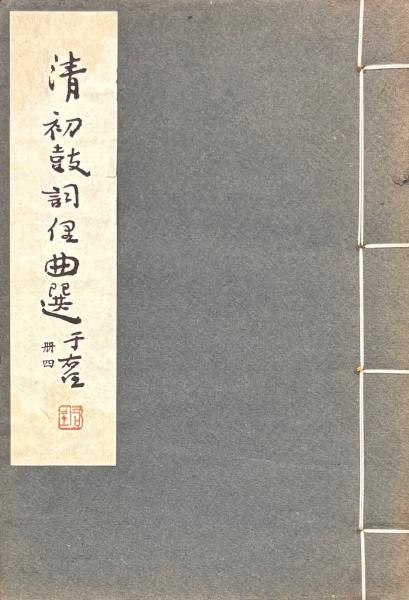 清初鼓詞俚曲選
于右任
册四